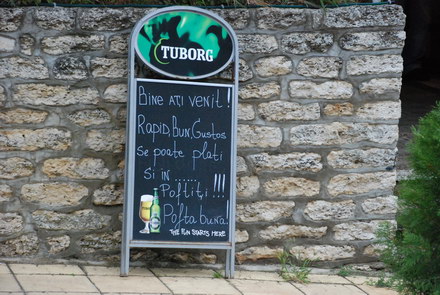 TUBORG
Bine ati venit!
Rapid, Bun, Gustos
se poate plati
si in ......
Poftiti, !!!
Pofta buna!
THE FUN STARTS HERE